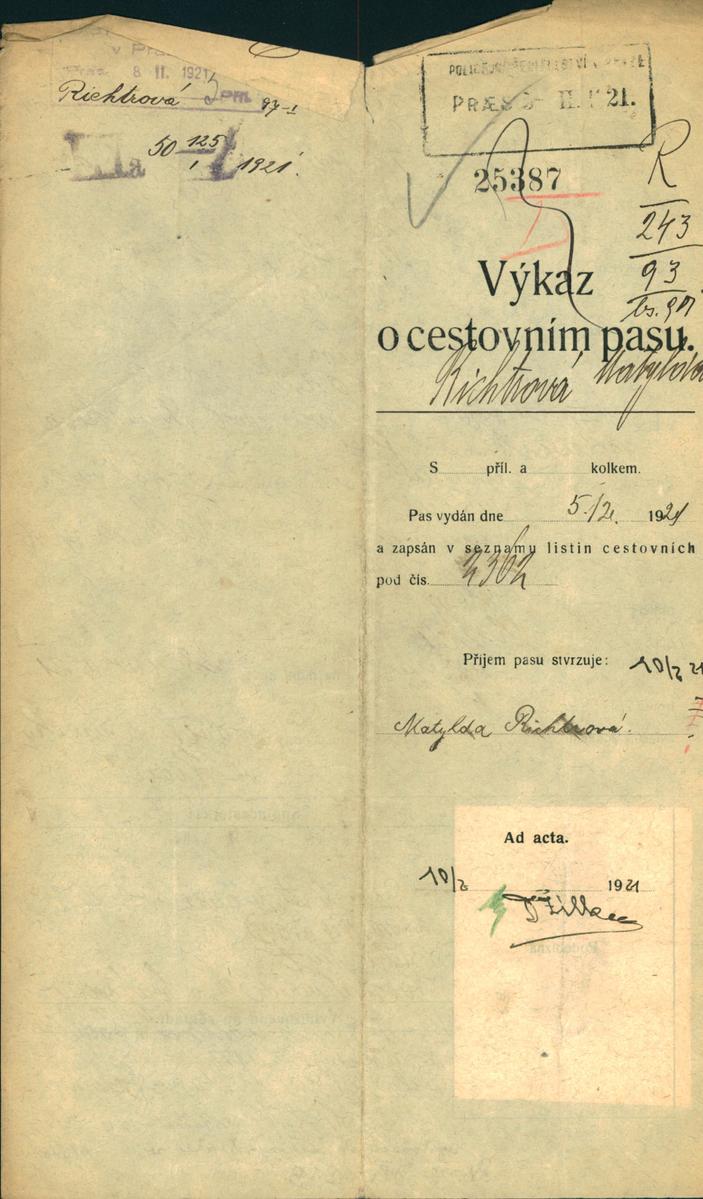 v Pra
8 II. 1921
Richtrová 97-I
50 125/I 1921.
POLICEJNÍ ŘEDITELSTVÍ V PRAZE
PRÆS 5- II. 1921.
25387
R
243
93
Výkaz
o cestovním pasu.
Richtrová Matylda
S příl. a kolkem.
Pas vydán dne 5./2. 1921
a zapsán v seznamu listin cestovních
pod čís. 2362
Příjem pasu stvrzuje: 10/2 21
Matylda Richtrová.
Ad acta.
10/2 1921